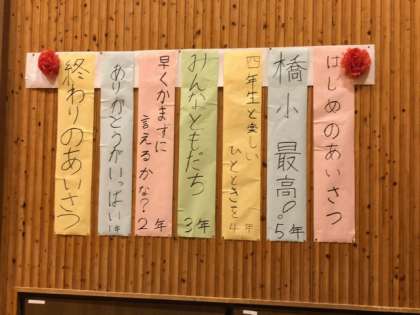 はじめのあいさつ
橋小 最高!。5年
四年生と楽しい
ひとときを4年
みんなともだち 3年
早くかまずに
言えるかな?2年
ありがとうがいっぱい 1年
終わりのあいさつ